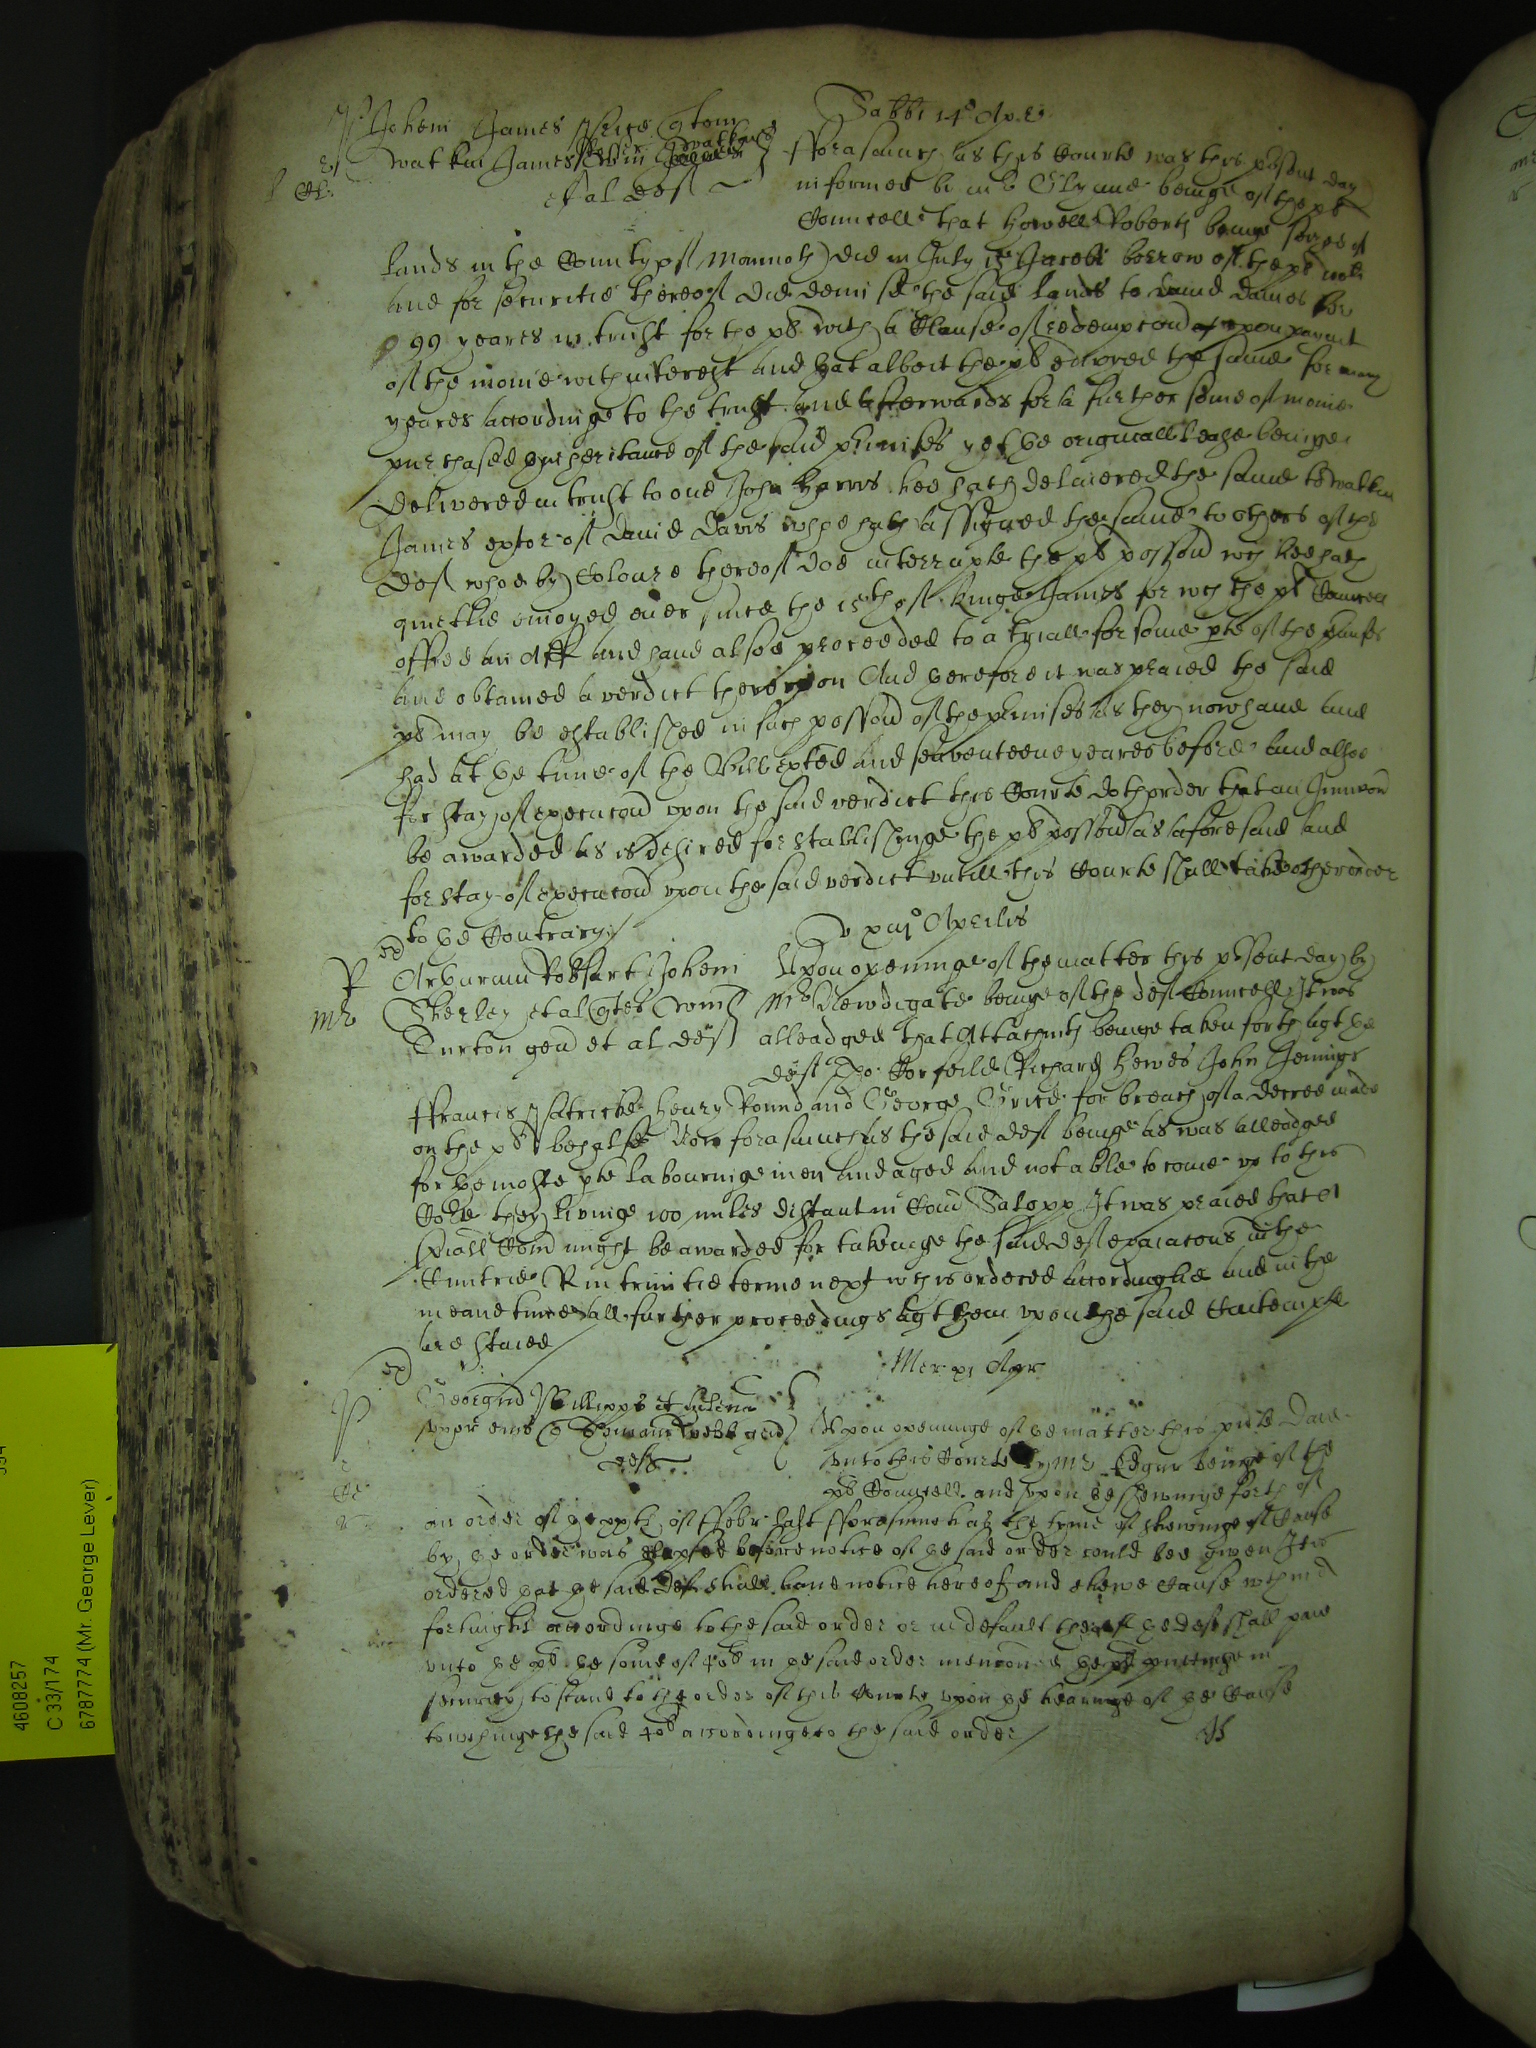 Sabbi 14o Apr
Johem James
Watkin James
et al def
fforasmuch as this Courte was this pᵈsent day
informed by mr Glynne beinge of the pl
Councell that Howell Roberts beinge seized of
lands in the County of Monmoth did in July Jacobi borrow of the pl
and for securitie thereof did demise the said lands to David Davies for
99 yeares in trust for the pl with a Clause of redempcon upon paymt
of the monie with interest And that albeit the pl enioyed the same for many
yeares accordinge to the trust and afterwards for a further some of monie
purchased the inheritance of the said pᵉmisses yet the originall Lease beinge
delivered in trust to one John Harris hee hath delivered the same to Watkin
James exᵗor of David Davis whoe hath assigned the same to others of the
def whoe by Colour thereof doe interrupte the pl possion wch hee hath
quietlie enioyed ever since the 15th of Kinge James for wch the pl Councell
offred an Aff and have alsoe proceeded to a tryall for some pte of the pᵉmisses
and obtained a verdict thereupon And therefore it was praied the said
pl may be established in such possion of the pᵉmisses as they now have and
had at the tyme of the Bill exhted and seaventeene yeares before And alsoe
for stay of execucon upon the said verdict this Courte doth order that an Iniuncon
be awarded as is desired for stablishinge the pl possion as aforesaid and
for stay of execucon upon the said verdict untill this Courte shall take other order
to the Contrary
Aprilis
Arburum Johem
Sherley et al
Turton gen et al def
Upon openinge of the matter this pᵈsent day by
Mr Newdigate beinge of the def Councell It was
alleadged that Attachmts beinge taken forth agt the
def Tho: Corfeild Richard Hewes John Jennings
ffrancis Patricke Henry Round and George Grice for breach of a decree made
on the pl behalfe Now forasmuch as the said def beinge as was alleadged
for the moste pte labouringe men and aged and not able to come up to this
Corte they livinge 100 miles distant in Com Salopp It was praied that a
spiall Com might be awarded for takeinge the said def exaiacons in the
Cuntrie R in trinitie terme next wch is ordered accordinglie and in the
meane tyme all further proceedings agt them upon the said Contempte
are staied
Mer Apr
Georgiu Phillipps et
uxor eius Thomam Webb gen
def
Upon openinge of the matter this pnte Daie
unto this Courte by mr Edgar beinge of the
pl Councell and upon the shewinge forth of
an order of the xxth of ffebr last fforasmuch as the tyme of shewinge of Cause
by the order was elapsed before notice of the said order could bee given It is
ordered that the said Def shall have notice hereof and shewe Cause within a
fortnight accordinge to the said order or in default thereof the def shall paie
unto the pl the some of 40s in the said order menconed the pl puttinge in
securitey to stand to the order of this Courte upon the hearinge of the Cause
towchinge the said 40s accordinge to the said order
4608257
C 33/174
6787774 (Mr. George Lever)